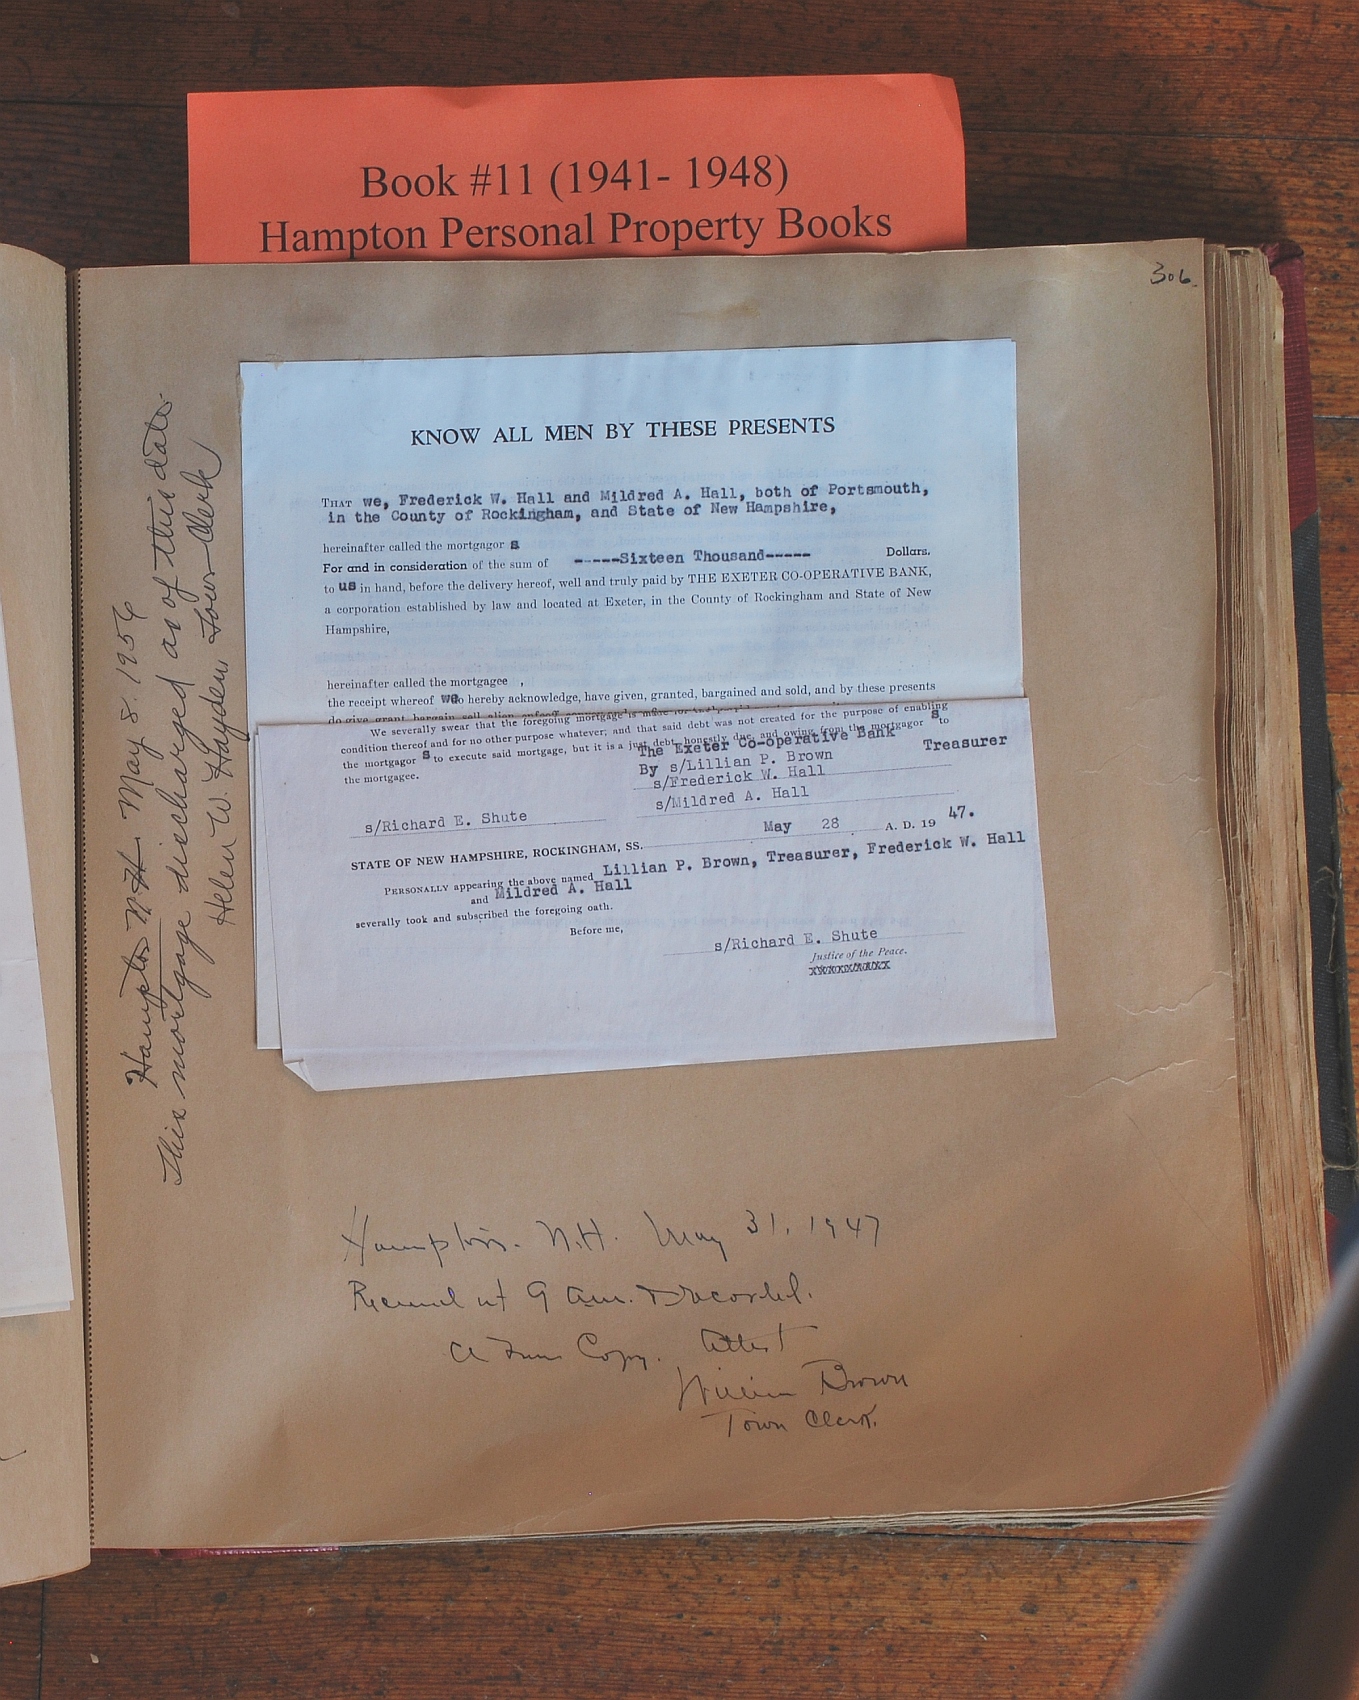 Book #11 (1941- 1948)
Hampton Personal Property Books
306.
KNOW ALL MEN BY THESE PRESENTS
THAT we, Frederick W. Hall and Mildred A. Hall, both of Portsmouth,
in the County of Rockingham, and State of New Hampshire,
hereinafter called the mortgagor s
For and in consideration of the sum of -----Sixteen Thousand----- Dollars.
to us in hand, before the delivery hereof, well and truly paid by THE EXETER CO-OPERATIVE BANK,
a corporation established by law and located at Exeter, in the County of Rockingham and State of New
Hampshire,
hereinafter called the mortgagee ,
the receipt whereof we do hereby acknowledge, have given, granted, bargained and sold, and by these presents
do give, grant, bargain, sell, alien, enfeoff
We severally swear that the foregoing mortgage is made for the
condition thereof and for no other purpose whatever, and that said debt was not created for the purpose of enabling
the mortgagor s to execute said mortgage, but it is a just debt, honestly due and owing from the mortgagor s to
the mortgagee.
The Exeter Co-operative Bank
By s/Lillian P. Brown Treasurer
s/Frederick W. Hall
s/Richard E. Shute s/Mildred A. Hall
STATE OF NEW HAMPSHIRE, ROCKINGHAM, SS. May 28 A. D. 19 47.
PERSONALLY appearing the above named Lillian P. Brown, Treasurer, Frederick W. Hall
and Mildred A. Hall
severally took and subscribed the foregoing oath.
Before me,
s/Richard E. Shute
Justice of the Peace.
Hampton N.H. May 8, 1956
This mortgage discharged as of this date.
Helen W. Hayden, Town Clerk
Hampton. N.H. May 31, 1947
Received at 9 am. & recorded.
a True Copy. Attest
William Brown
Town Clerk.